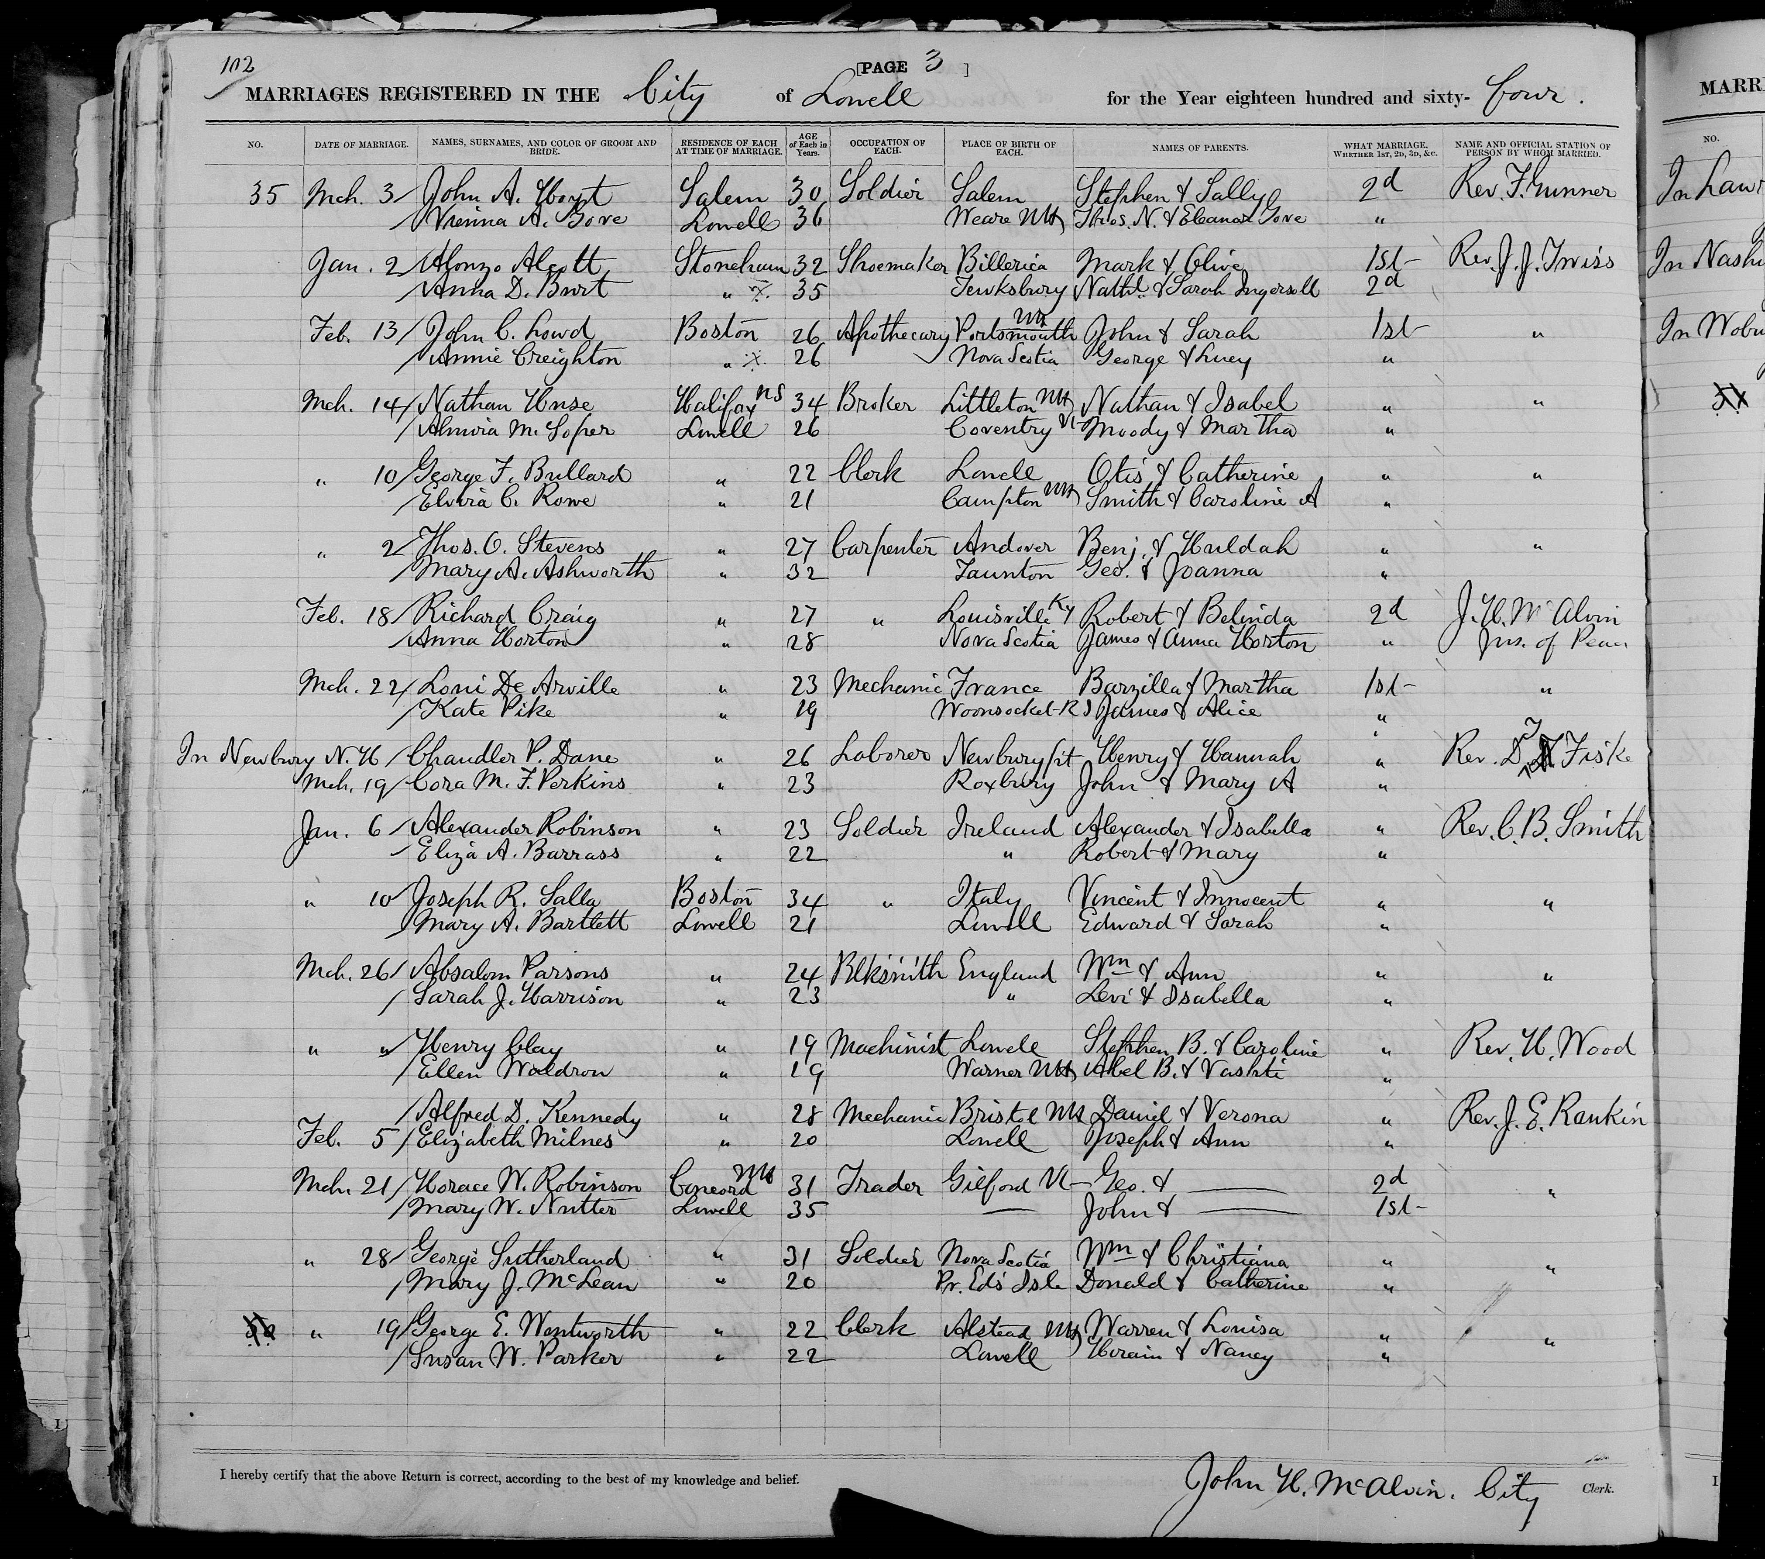 102
[PAGE 3 ]
MARRIAGES REGISTERED IN THE City of Lowell for the Year eighteen hundred and sixty- four.
NO. DATE OF MARRIAGE. NAMES, SURNAMES, AND COLOR OF GROOM AND BRIDE. RESIDENCE OF EACH AT TIME OF MARRIAGE. AGE of Each in Years. OCCUPATION OF EACH. PLACE OF BIRTH OF EACH. NAMES OF PARENTS. WHAT MARRIAGE, WHETHER 1ST, 2D, 3D, &C. NAME AND OFFICIAL STATION OF PERSON BY WHOM MARRIED.
35 Mch. 3 John A. Hoyt Salem 30 Soldier Salem Stephen & Sally 2d Rev. F. Gunner
Vienna A. Gove Lowell 36 Weare NH Thos. N. & Eleanor Gove "
Jan. 2 Alonzo Alcott Stoneham 32 Shoemaker Billerica Mark & Olive 1st Rev. J. J. Twiss
Anna D. Burt " 35 Tewksbury Nathl. & Sarah Ingersoll 2d
Feb. 13 John C. Lowd Boston 26 Apothecary Portsmouth NH John & Sarah 1st "
Annie Creighton " 26 Nova Scotia George & Lucy "
Mch. 14 Nathan Hnse Halifax NS 34 Broker Littleton NH Nathan & Isabel " "
Almira M. Soper Lowell 26 Coventry Vt Moody & Martha "
" 10 George F. Bullard " 22 Clerk Lowell Otis & Catherine " "
Elvira C. Rowe " 21 Campton NH Smith & Caroline A "
" 2 Thos. O. Stevens " 27 Carpenter Andover Benj. & Huldah " "
Mary A. Ashworth " 32 Taunton Geo. & Joanna "
Feb. 18 Richard Craig " 27 " Louisville Ky Robert & Belinda 2d J. H. McAlvin
Anna Horton " 28 Nova Scotia James & Anna Horton " Jus. of Peac
Mch. 22 Loni De Arville " 23 Mechanic France Barzilla & Martha 1st "
Kate Pike " 19 Woonsocket R I James & Alice "
In Newbury N. H Chandler P. Dane " 26 Laborer Newburypt Henry & Hannah " Rev. D. T Fiske
Mch. 19 Cora M. F. Perkins " 23 Roxbury John & Mary A "
Jan. 6 Alexander Robinson " 23 Soldier Ireland Alexander & Isabella " Rev. C. B. Smith
Eliza A. Barrass " 22 " Robert & Mary "
" 10 Joseph R. Salla Boston 34 " Italy Vincent & Innocent " "
Mary A. Bartlett Lowell 21 Lowell Edward & Sarah "
Mch. 26 Absalom Parsons " 24 Blksmith England Wm & Ann " "
Sarah J. Harrison " 23 " Levi & Isabella "
" " Henry Clay " 19 Machinist Lowell Stephen B. & Caroline " Rev. H. Wood
Ellen Waldron " 19 Warner NH Abel B. & Vashti "
Alfred D. Kennedy " 28 Mechanic Bristol NH Daniel & Verona " Rev. J. E. Rankin
Feb. 5 Elizabeth Milnes " 20 Lowell Joseph & Ann "
Mch. 21 Horace W. Robinson Concord NH 31 Trader Gilford Vt Geo. & — 2d "
Mary W. Nutter Lowell 35 — John & — 1st
" 28 George Sutherland " 31 Soldier Nova Scotia Wm & Christiana " "
Mary J. McLean " 20 Pr. Eds Isle Donald & Catherine "
" 19 George E. Wentworth " 22 Clerk Alstead NH Warren & Louisa " "
Susan W. Parker " 22 Lowell Hiram & Nancy "
I hereby certify that the above Return is correct, according to the best of my knowledge and belief.
John H. McAlvin. City Clerk.
MARRI
NO.
In Law
In Nash
In Wobu